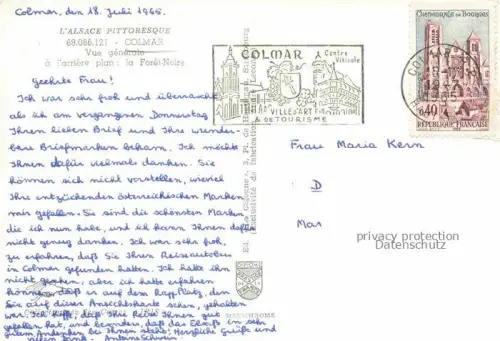 Colmar, den 18. Juli 1965.
L'ALSACE PITTORESQUE
68.066.121 - COLMAR
Vue générale
à l'arrière plan : la Forêt-Noire
Geehrte Frau!
Ich war sehr froh und überrascht
als ich am vergangenen Donnerstag
Ihren lieben Brief und Ihre wunder-
bare Briefmarken bekam. Ich möchte
Ihnen dafür vielmals danken. Sie
können sich nicht vorstellen, wieviel
Ihre entzückenden österreichischen Marken
mir gefallen. Sie sind die schönsten Marken
die ich nun habe, und ich kann Ihnen dafür
nicht genug danken. Ich war sehr froh,
zu erfahren, daß Sie Ihren Reiseautobus
in Colmar gefunden hatten. Ich hatte ihn
nicht gesehen, aber ich hatte erfahren
können, daß er auf dem Rapp Platz, den
Sie auf dieser Ansichtskarte sehen, gehalten
war. Ich hoffe, daß Ihre Reise Ihnen gut
gefallen hat, und besonders, daß das Elsaß in sehr
gutem Andenken bei Ihnen steht! Herzliche Grüße und
vielen Dank.
COLMAR
Centre
Viticole
VILLE D'ART
& DE TOURISME
CATHEDRALE DE BOURGES
0,40
REPUBLIQUE FRANÇAISE
COLMAR
Frau Maria Kern
D
Mar
privacy protection
Datenschutz